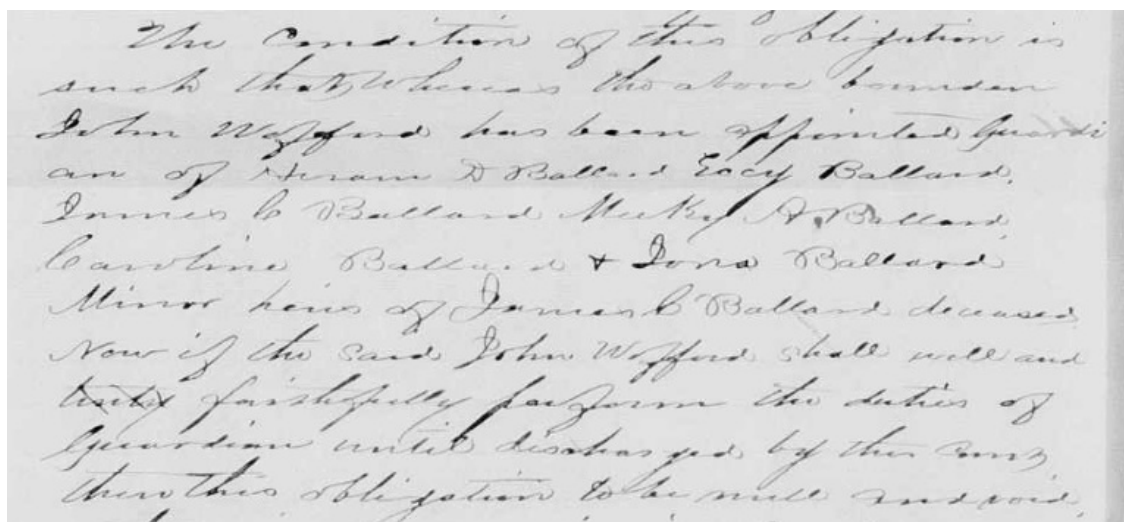 The Condition of this obligation is
such that Whereas the above bounden
John Wofford has been appointed Guardi
an of Hiram D Ballard Eocy Ballard,
James C Ballard Meeky A. Ballard,
Caroline Ballard & Iona Ballard
Minor heirs of James C Ballard deceased
Now if the said John Wofford shall well and
truly faithfully perform the duties of
Guardian until discharged by this
then this obligation to be null and void,